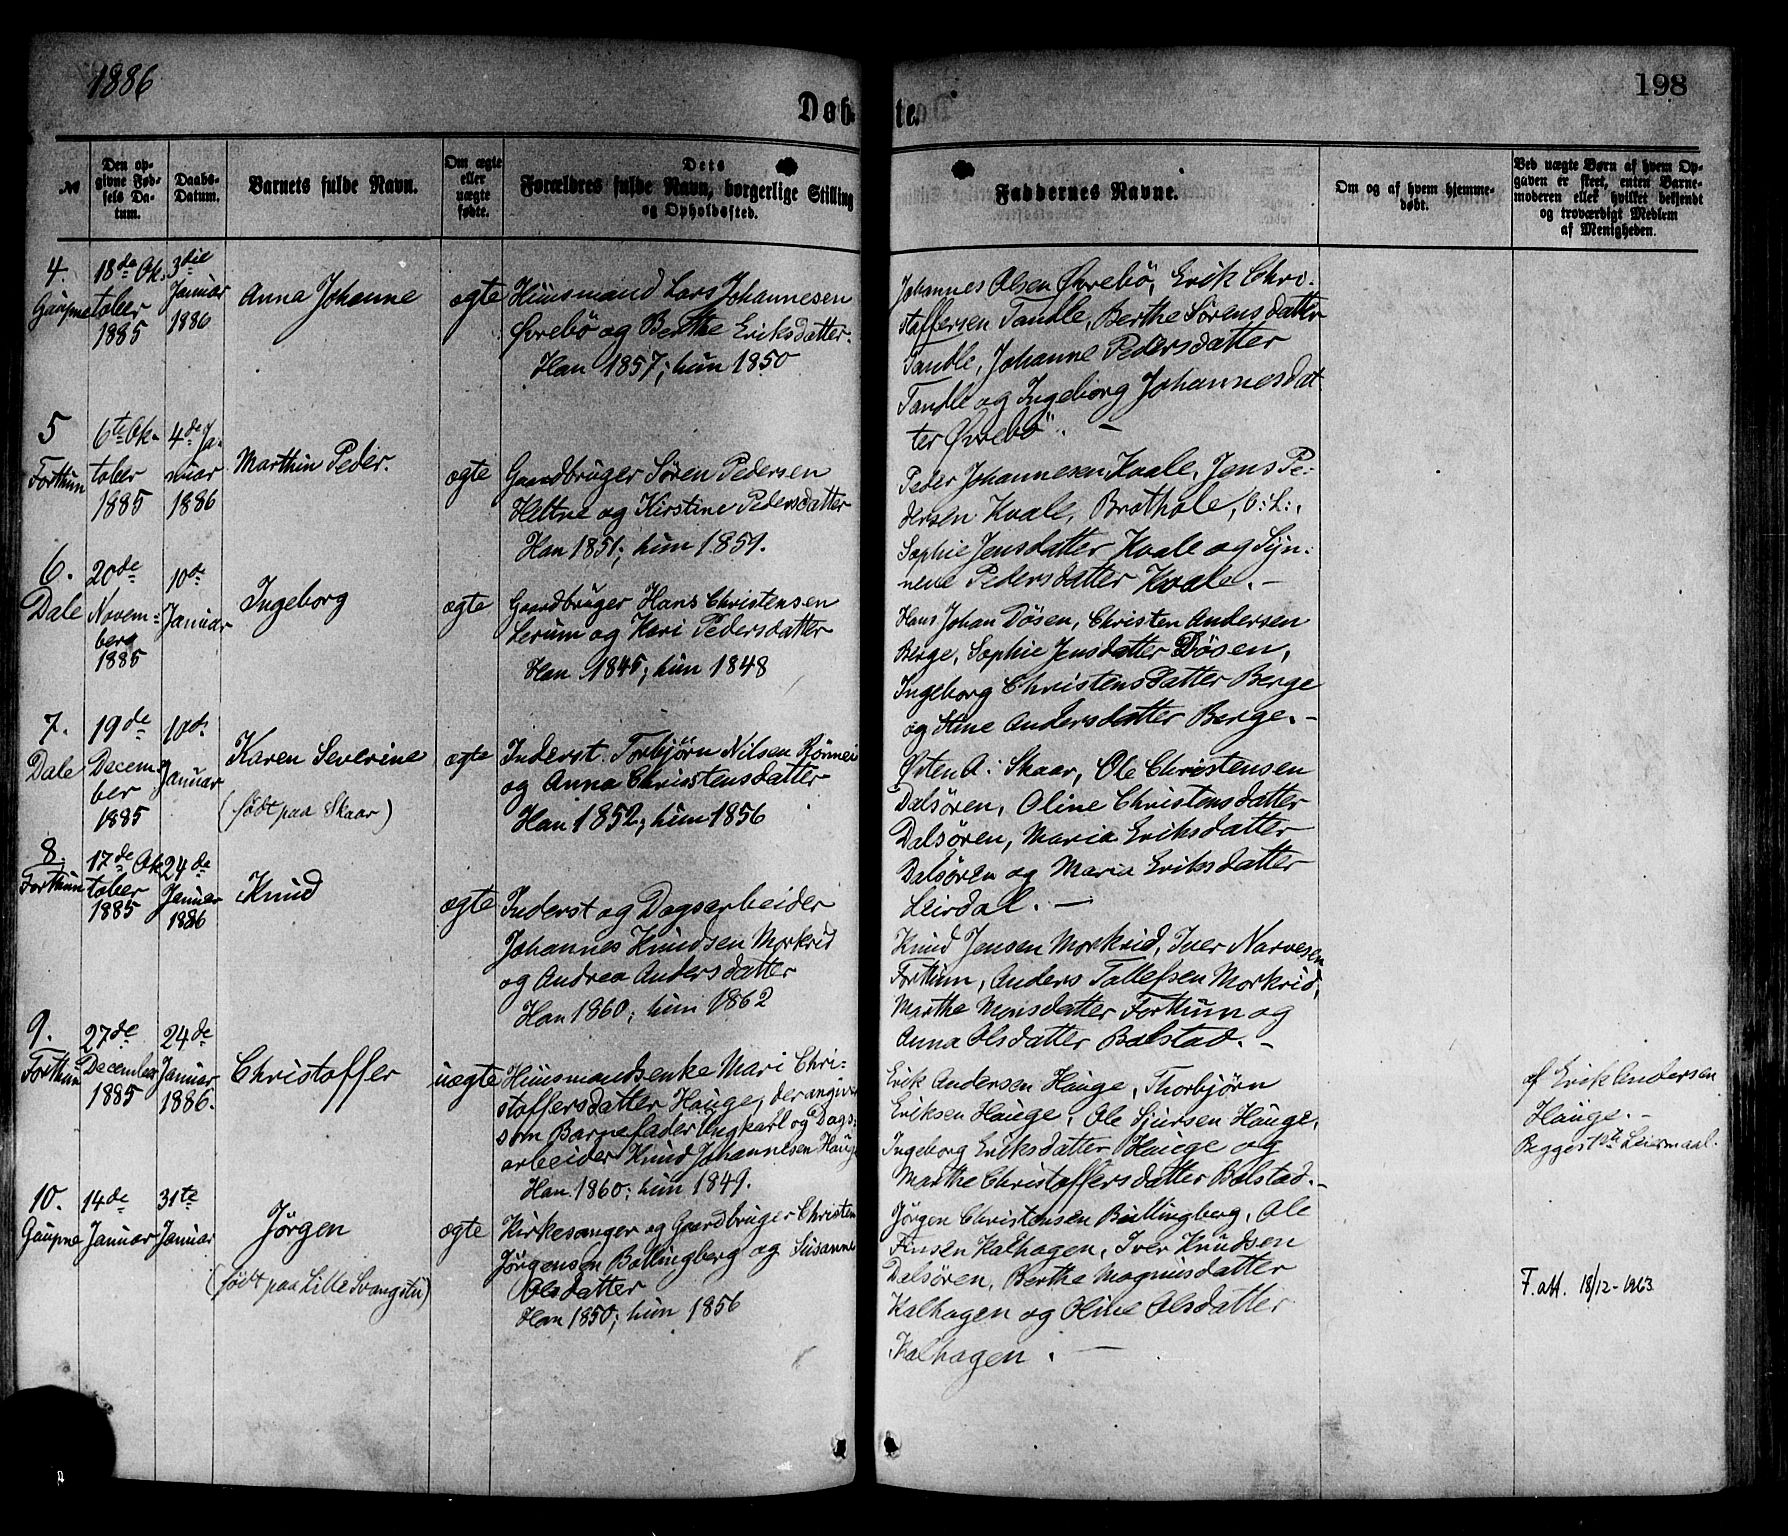 1886
198
Døb-te.
№
Den op-
givne Fød-
sels Da-
tum.
Daabs-
Datum.
Barnets fulde Navn.
Om ægte
eller
uægte
født.
Dets
Forældres fulde Navn, borgerlige Stilling
og Opholdssted.
Faddernes Navne.
Om og af hvem hjemme-
døbt.
Ved uægte Børn af hvem Op-
gaven er skeet, enten Barne-
moderen eller hvilket bekjendt
og troværdigt Medlem
af Menigheden.
4.
Gaupne
18de Ok-
tober
1885
3die
Januar
1886
Anna Johanne
ægte
Huusmand Lars Johannesen
Øvrebö og Berthe Eriksdatter.
Han 1857; hun 1850
Johannes Olsen Øvrebö, Erik Chri-
stoffersen Tandle, Berthe Sörensdatter
Tandle, Johanne Pedersdatter
Tandle og Ingeborg Johannesdat
ter Øvrebö. —
5
Forthun
6te Ok-
tober
1885
4de Ja-
nuar
1886
Marthin Peder.
ægte
Gaardbruger Sören Pedersen
Heltne og Kirstine Pedersdatter
Han 1851; hun 1859.
Peder Johannesen Kvale, Jens Pe-
dersen Kvale, Brathole,
Sophie Jensdatter Kvale og Syn-
neve Pedersdatter Kvale. -
6.
Dale
20de
Novem-
ber
1885
10de
Januar
Ingeborg
ægte
Gaardbruger Hans Christensen
Lerum og Kari Pedersdatter
Han 1845; hun 1848
Hans Johan Dösen, Christen Andersen
Berge, Sophie Jensdatter Dösen,
Ingeborg Christensdatter Berge
og Stine Andersdatter Berge. -
7.
Dale
19de
Decem-
ber
1885
10de
Januar
Karen Severine
(født paa Skaar)
ægte
Inderst Torbjörn Nilsen Rönnei
og Anna Christensdatter
Han 1852; hun 1856
Østen A: Skaar, Ole Christensen
Dalsören, Oline Christensdatter
Dalsören, Maria Eriksdatter
Dalsören og Maria Eriksdatter
Leirdal. —
8.
Forthun
17de Ok
tober
1885
24de
Januar
1886
Knud
ægte
Inderst og Dagsarbeider
Johannes Knudsen Morkrid
og Andrea Andersdatter
Han 1860; hun 1862
Knud Jensen Morkrid, Iver Narvesen
Forthun, Anders Tollefsen Morkrid,
Marthe Monsdatter Forthun og
Anna Olsdatter Bolstad. -
9.
Forthun
27de
December
1885
24de
Januar
1886.
Christoffer
uægte
Huusmandsenke Mari Chri-
stoffersdatter Hauge, der angiver
som Barnefader Ungkarl og Dags-
arbeider Knud Johannesen Hauge
Han 1860; hun 1849.
Erik Andersen Hauge, Thorbjörn
Eriksen Hauge, Ole Sjursen Hauge,
Ingeborg Eriksdatter Hauge og
Marthe Christoffersdatter Bolstad. -
af Erik Andersen
Hauge. -
Begges 1ste Leiermaal.
10.
Gaupne
14de
Januar
31te
Januar
Jörgen
(født paa Lille Svangstu)
ægte
Kirkesanger og Gaardbruger Christen
Jörgensen Bollingberg og Susanne
Olsdatter
Han 1850; hun 1856
Jörgen Christensen Bullingberg, Ole
Finsen Kalhagen, Iver Knudsen
Dalsören, Berthe Magnusdatter
Kalhagen og Oline Olsdatter
Kalhagen. —
F.att. 18/12-1963